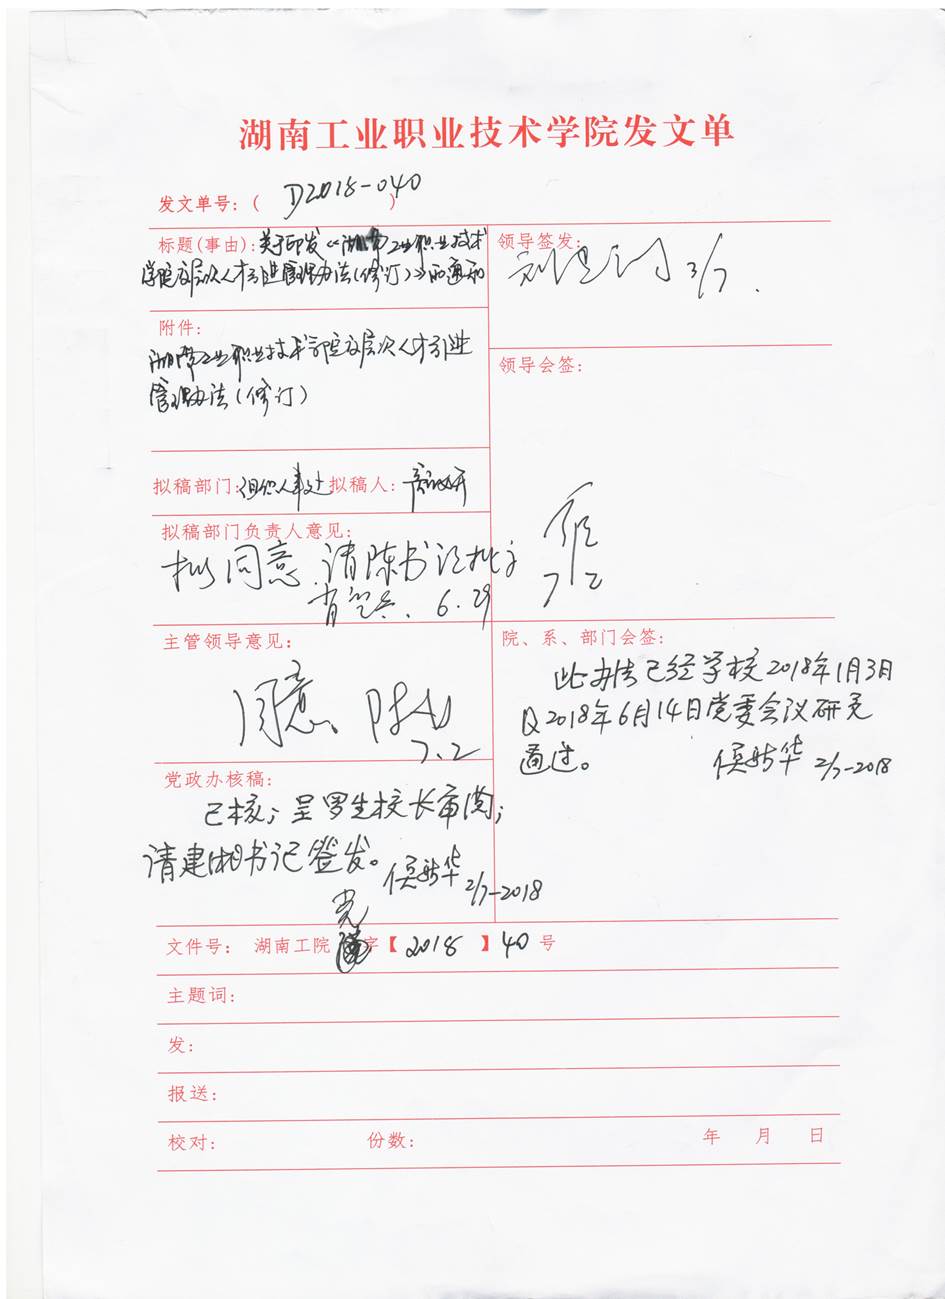 湖南工业职业技术学院发文单
发文单号：( D2018-040 )
标题(事由)：关于印发《湖南工业职业技术
学院高层次人才引进管理办法(修订)》的通知
附件：
湖南工业职业技术学院高层次人才引进
管理办法(修订)
拟稿部门：组织人事处 拟稿人：
拟稿部门负责人意见：
拟同意，请陈书记批示
6.29
主管领导意见：
同意。
7.2
党政办核稿：
已核；呈罗生校长审阅；
请建湘书记签发。
侯新华 2/7-2018
领导签发：
3/7.
领导会签：
7/2
院、系、部门会签：
此办法已经学校2018年1月3日
及2018年6月14日党委会议研究
通过。 侯新华 2/7-2018
党
文件号： 湖南工院 字【 2018 】40 号
主题词：
发：
报送：
校对： 份数： 年 月 日